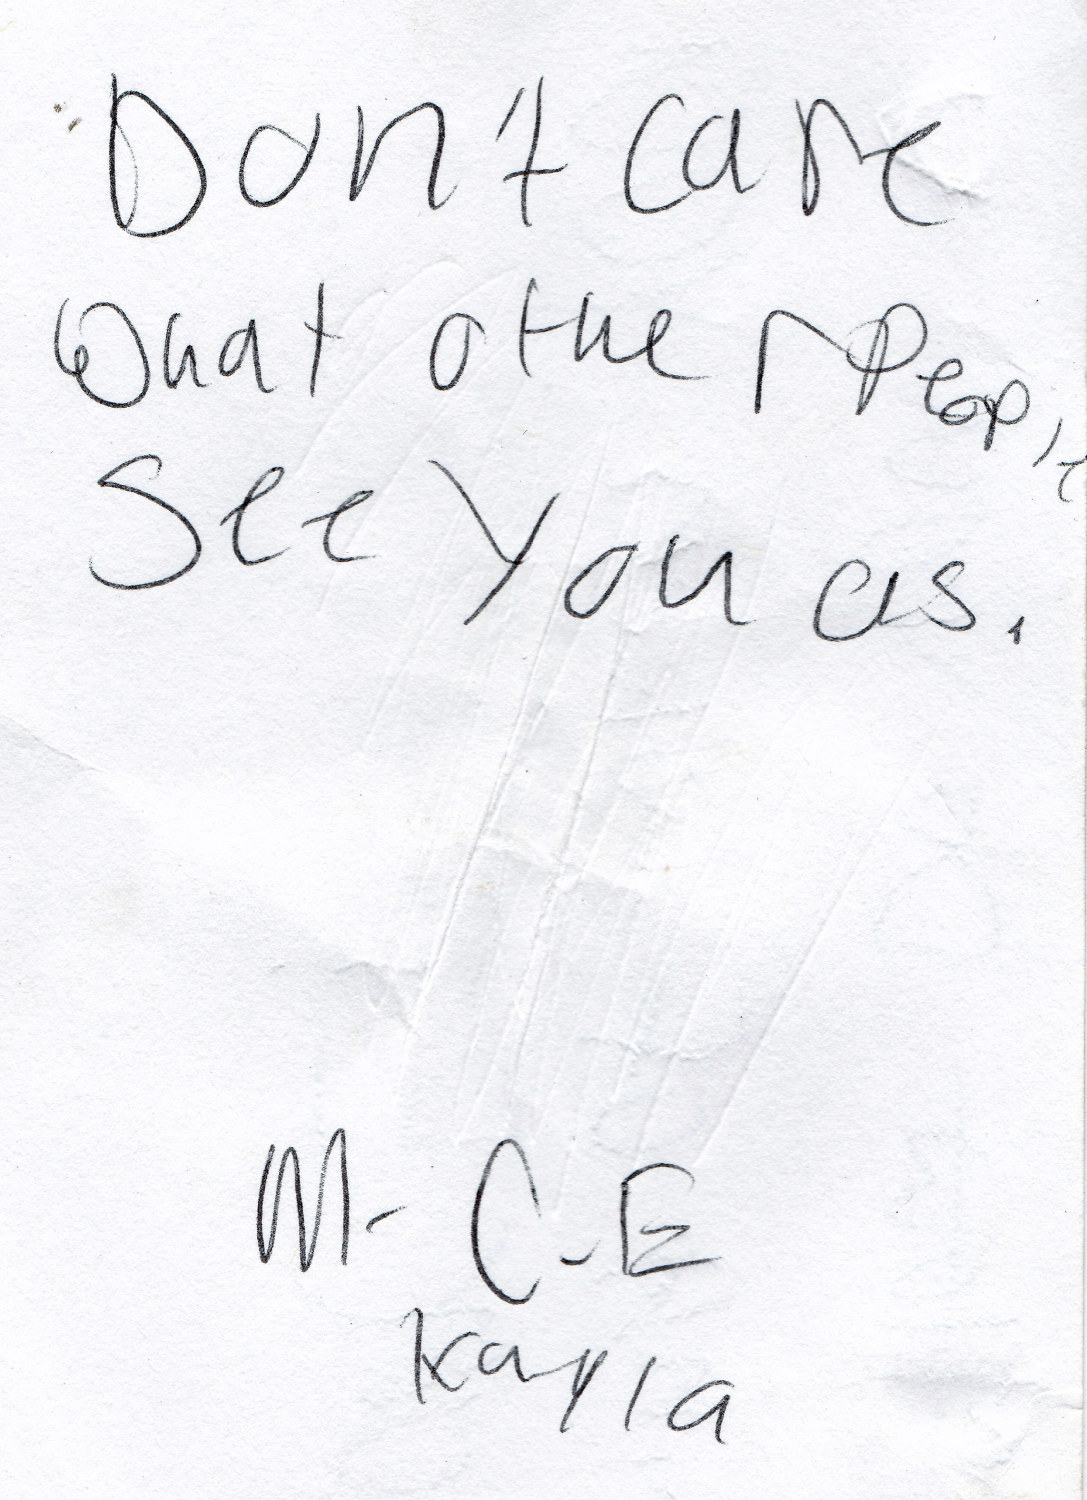 Don't care
What other People
See You as.
M-C-E
Kayla